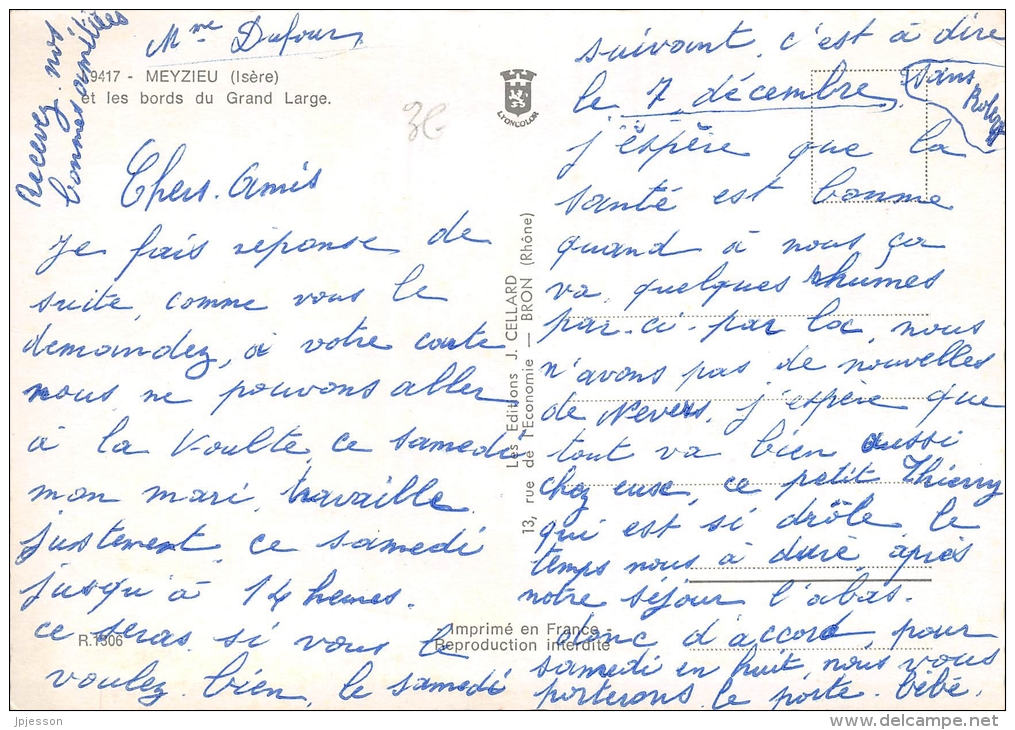 Mme Dufour
Recevez nos
bonnes amitiées
9417 - MEYZIEU (Isère)
et les bords du Grand Large.
LYONCOLOR
3€
Chers Amis
Je fais réponse de
suite, comme vous le
demandez, à votre carte
nous ne pouvons aller
à la Voulte ce samedi
mon mari travaille
justement ce samedi
jusqu'à 14 heures.
ce seras si vous le
voulez bien, le samedi
R.1306
Imprimé en France -
Reproduction interdite
Les Editions J. CELLARD
13, rue de l'Economie — BRON (Rhône)
suivant, c'est à dire
le 7 décembre, sans
j'èspère que la
santé est bonne
quand à nous ça
va, quelques rhumes
par-ci-par là, nous
n'avons pas de nouvelles
de Nevers, j'espère que
tout va bien aussi
chez euse, ce petit Thierry
qui est si drôle le
temps nous à duré après
notre séjour l'abas.
donc d'accord pour
samedi en huit nous vous
porterons le porte-bébé.
jpjesson
www.delcampe.net